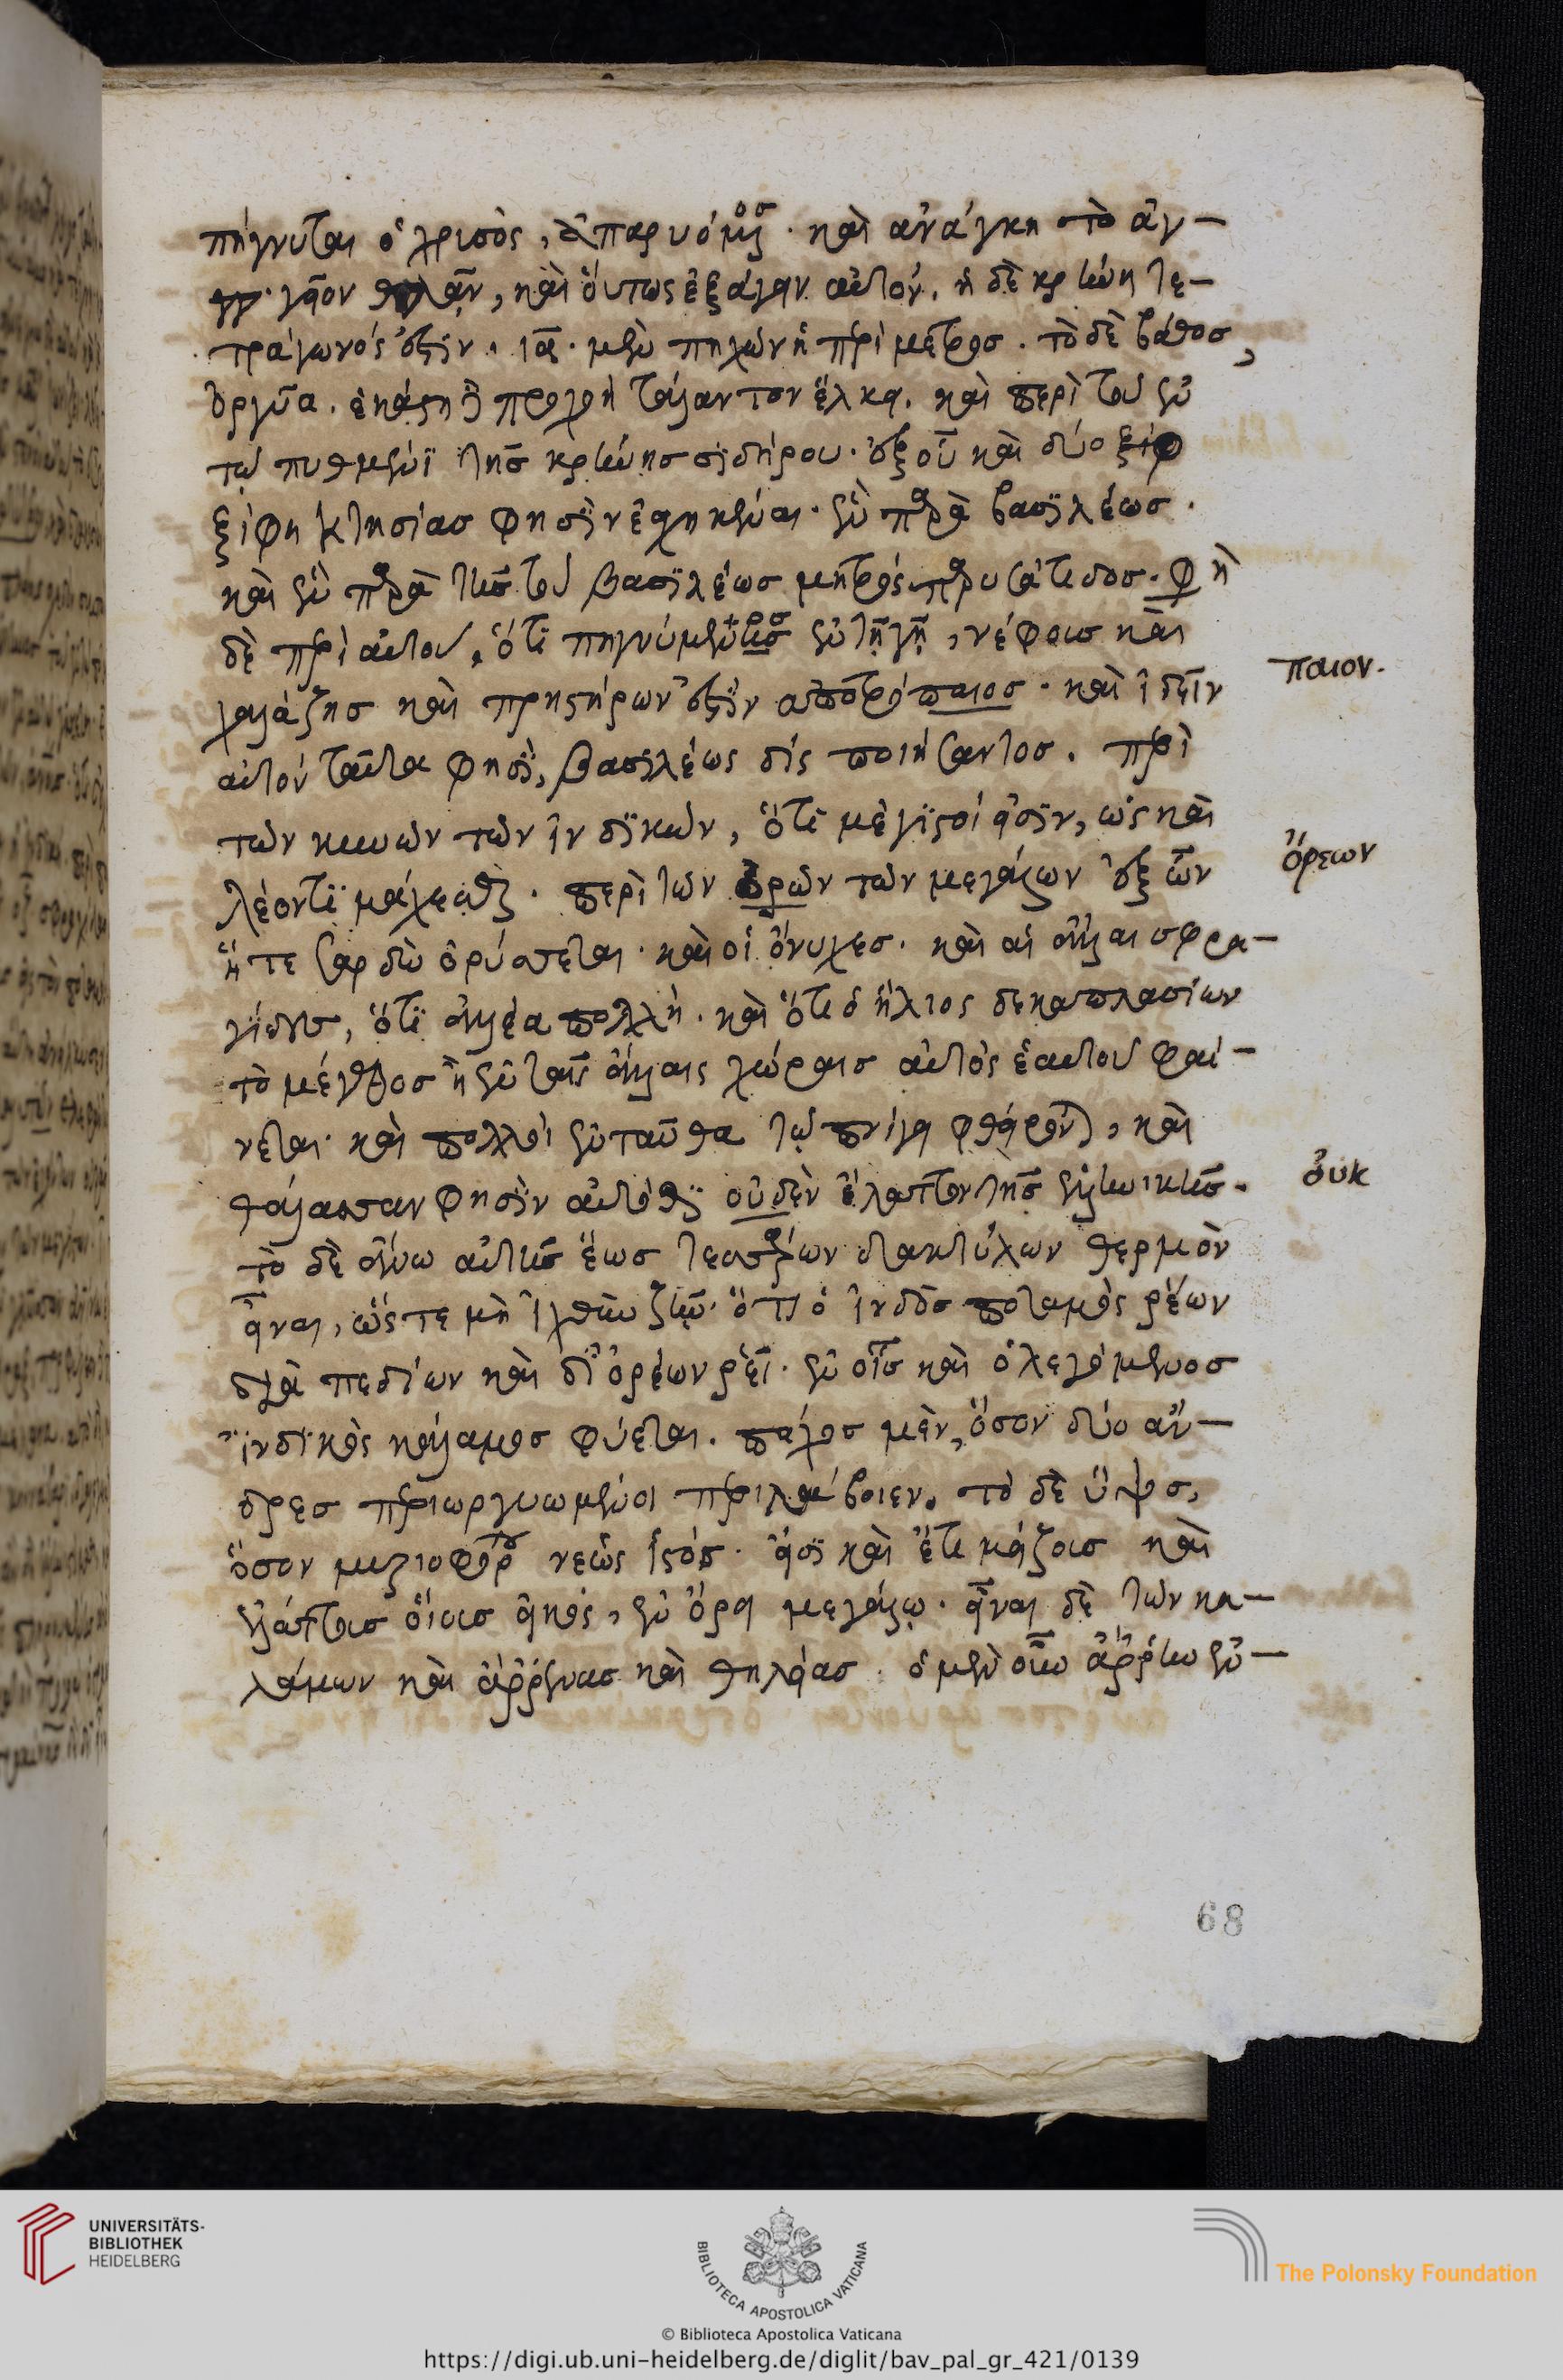 πήγνυται ὁ χρυσὸς, ὁ ἀπαρυόμενος· καὶ ἀνάγκη τὸ ἀγ-
γεῖον θλᾶν, καὶ οὕτως ἐξάγειν αὐτόν. ἡ δὲ κρήνη τε-
τράγωνός ἐστιν. μὲν πηχῶν ἡ περίμετρος. τὸ δὲ βάθος,
ὀργυῖα. ἑκάστη δὲ προχοὴ τάλαντον ἕλκει. καὶ περὶ τοῦ ἐν
τῷ πυθμένι τῆς κρήνης σιδήρου· ἐξ οὗ καὶ δύο ξιφ
ξίφη κτησίας φησὶν ἐσχηκέναι· ἓν παρὰ βασιλέως.
καὶ ἓν παρὰ τῆς τοῦ βασιλέως μητρὸς παρυσάτιδος. φη
δὲ περὶ αὐτοῦ, ὅτι πηγνύμενος ἐν τῇ γῇ, νέφους καὶ
χαλάζης καὶ πρηστήρων ἐστὶν ἀποτρόπαιος. καὶ ἰδεῖν
παιον.
αὐτὸν ταῦτα φησὶ, βασιλέως δὶς ποιήσαντος. περὶ
τῶν κυνῶν τῶν ἰνδικῶν, ὅτι μέγιστοί εἰσιν, ὡς καὶ
λέοντι μάχεσθαι. περὶ τῶν ὀρῶν τῶν μεγάλων ἐξ ὧν
ὄρεων
ἥ τε σαρδὼ ὀρύσσεται· καὶ οἱ ὄνυχες. καὶ αἱ ἄλλαι σφρα-
γίδες, ὅτι ἀλέα πολλὴ. καὶ ὅτι ὁ ἥλιος δεκαπλασίων
τὸ μέγεθος ἢ ἐν ταῖς ἄλλαις χώραις αὐτὸς ἑαυτοῦ φαί-
νεται· καὶ πολλοὶ ἐνταῦθα τῷ πνίγει φθείρονται, καὶ
θάλασσαν φησὶν αὐτόθι οὐδὲν ἐλάττον τῆς ἑλληνικῆς.
οὐκ
τὸ δὲ ἄνω αὐτῆς ἕως τεσσάρων δακτύλων θερμὸν
εἶναι, ὥστε μὴ ἰχθὺν ζῆν. ὅτι ὁ ἰνδὸς ποταμὸς ῥέων
διὰ πεδίων καὶ δι' ὀρέων ῥεῖ· ἐν οἷς καὶ ὁ λεγόμενος
ἰνδικὸς κάλαμος φύεται. πάχος μὲν, ὅσον δύο ἄν-
δρες περιωργυωμένοι περιλάβοιεν. τὸ δὲ ὕψος,
ὅσον μυριοφόρου νεὼς ἱστός. εἰσὶ καὶ ἔτι μείζους καὶ
ἐλάττους οἵους εἰκὸς, ἐν ὄρει μεγάλῳ. εἶναι δὲ τῶν κα-
λάμων καὶ ἄῤῥενας καὶ θηλείας. ὁ μὲν οὖν ἄῤῥην ἐν-
68
UNIVERSITÄTS-
BIBLIOTHEK
HEIDELBERG
BIBLIOTECA APOSTOLICA VATICANA
The Polonsky Foundation
© Biblioteca Apostolica Vaticana
https://digi.ub.uni-heidelberg.de/diglit/bav_pal_gr_421/0139